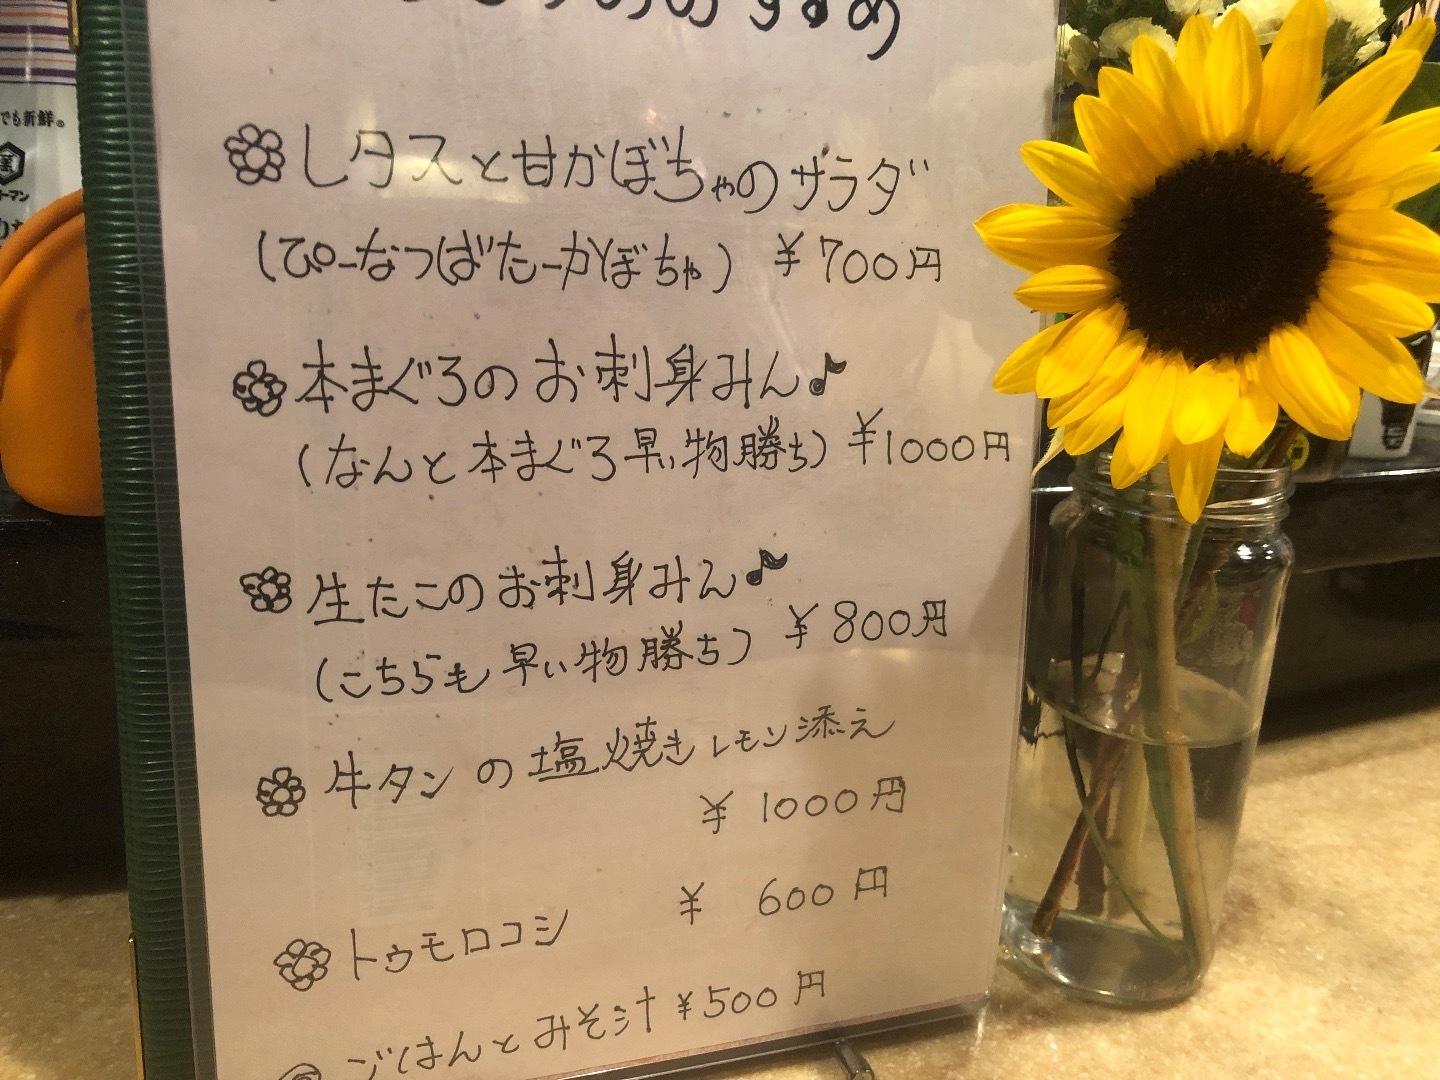 おすすめ
レタスと甘かぼちゃのサラダ
(ぴーなつばたーかぼちゃ) ¥700円
本まぐろのお刺身みん♪
(なんと本まぐろ早い物勝ち) ¥1000円
生たこのお刺身みん♪
(こちらも早い物勝ち) ¥800円
牛タンの塩焼きレモン添え
¥1000円
トゥモロコシ ¥600円
ごはんとみそ汁 ¥500円
でも新鮮。